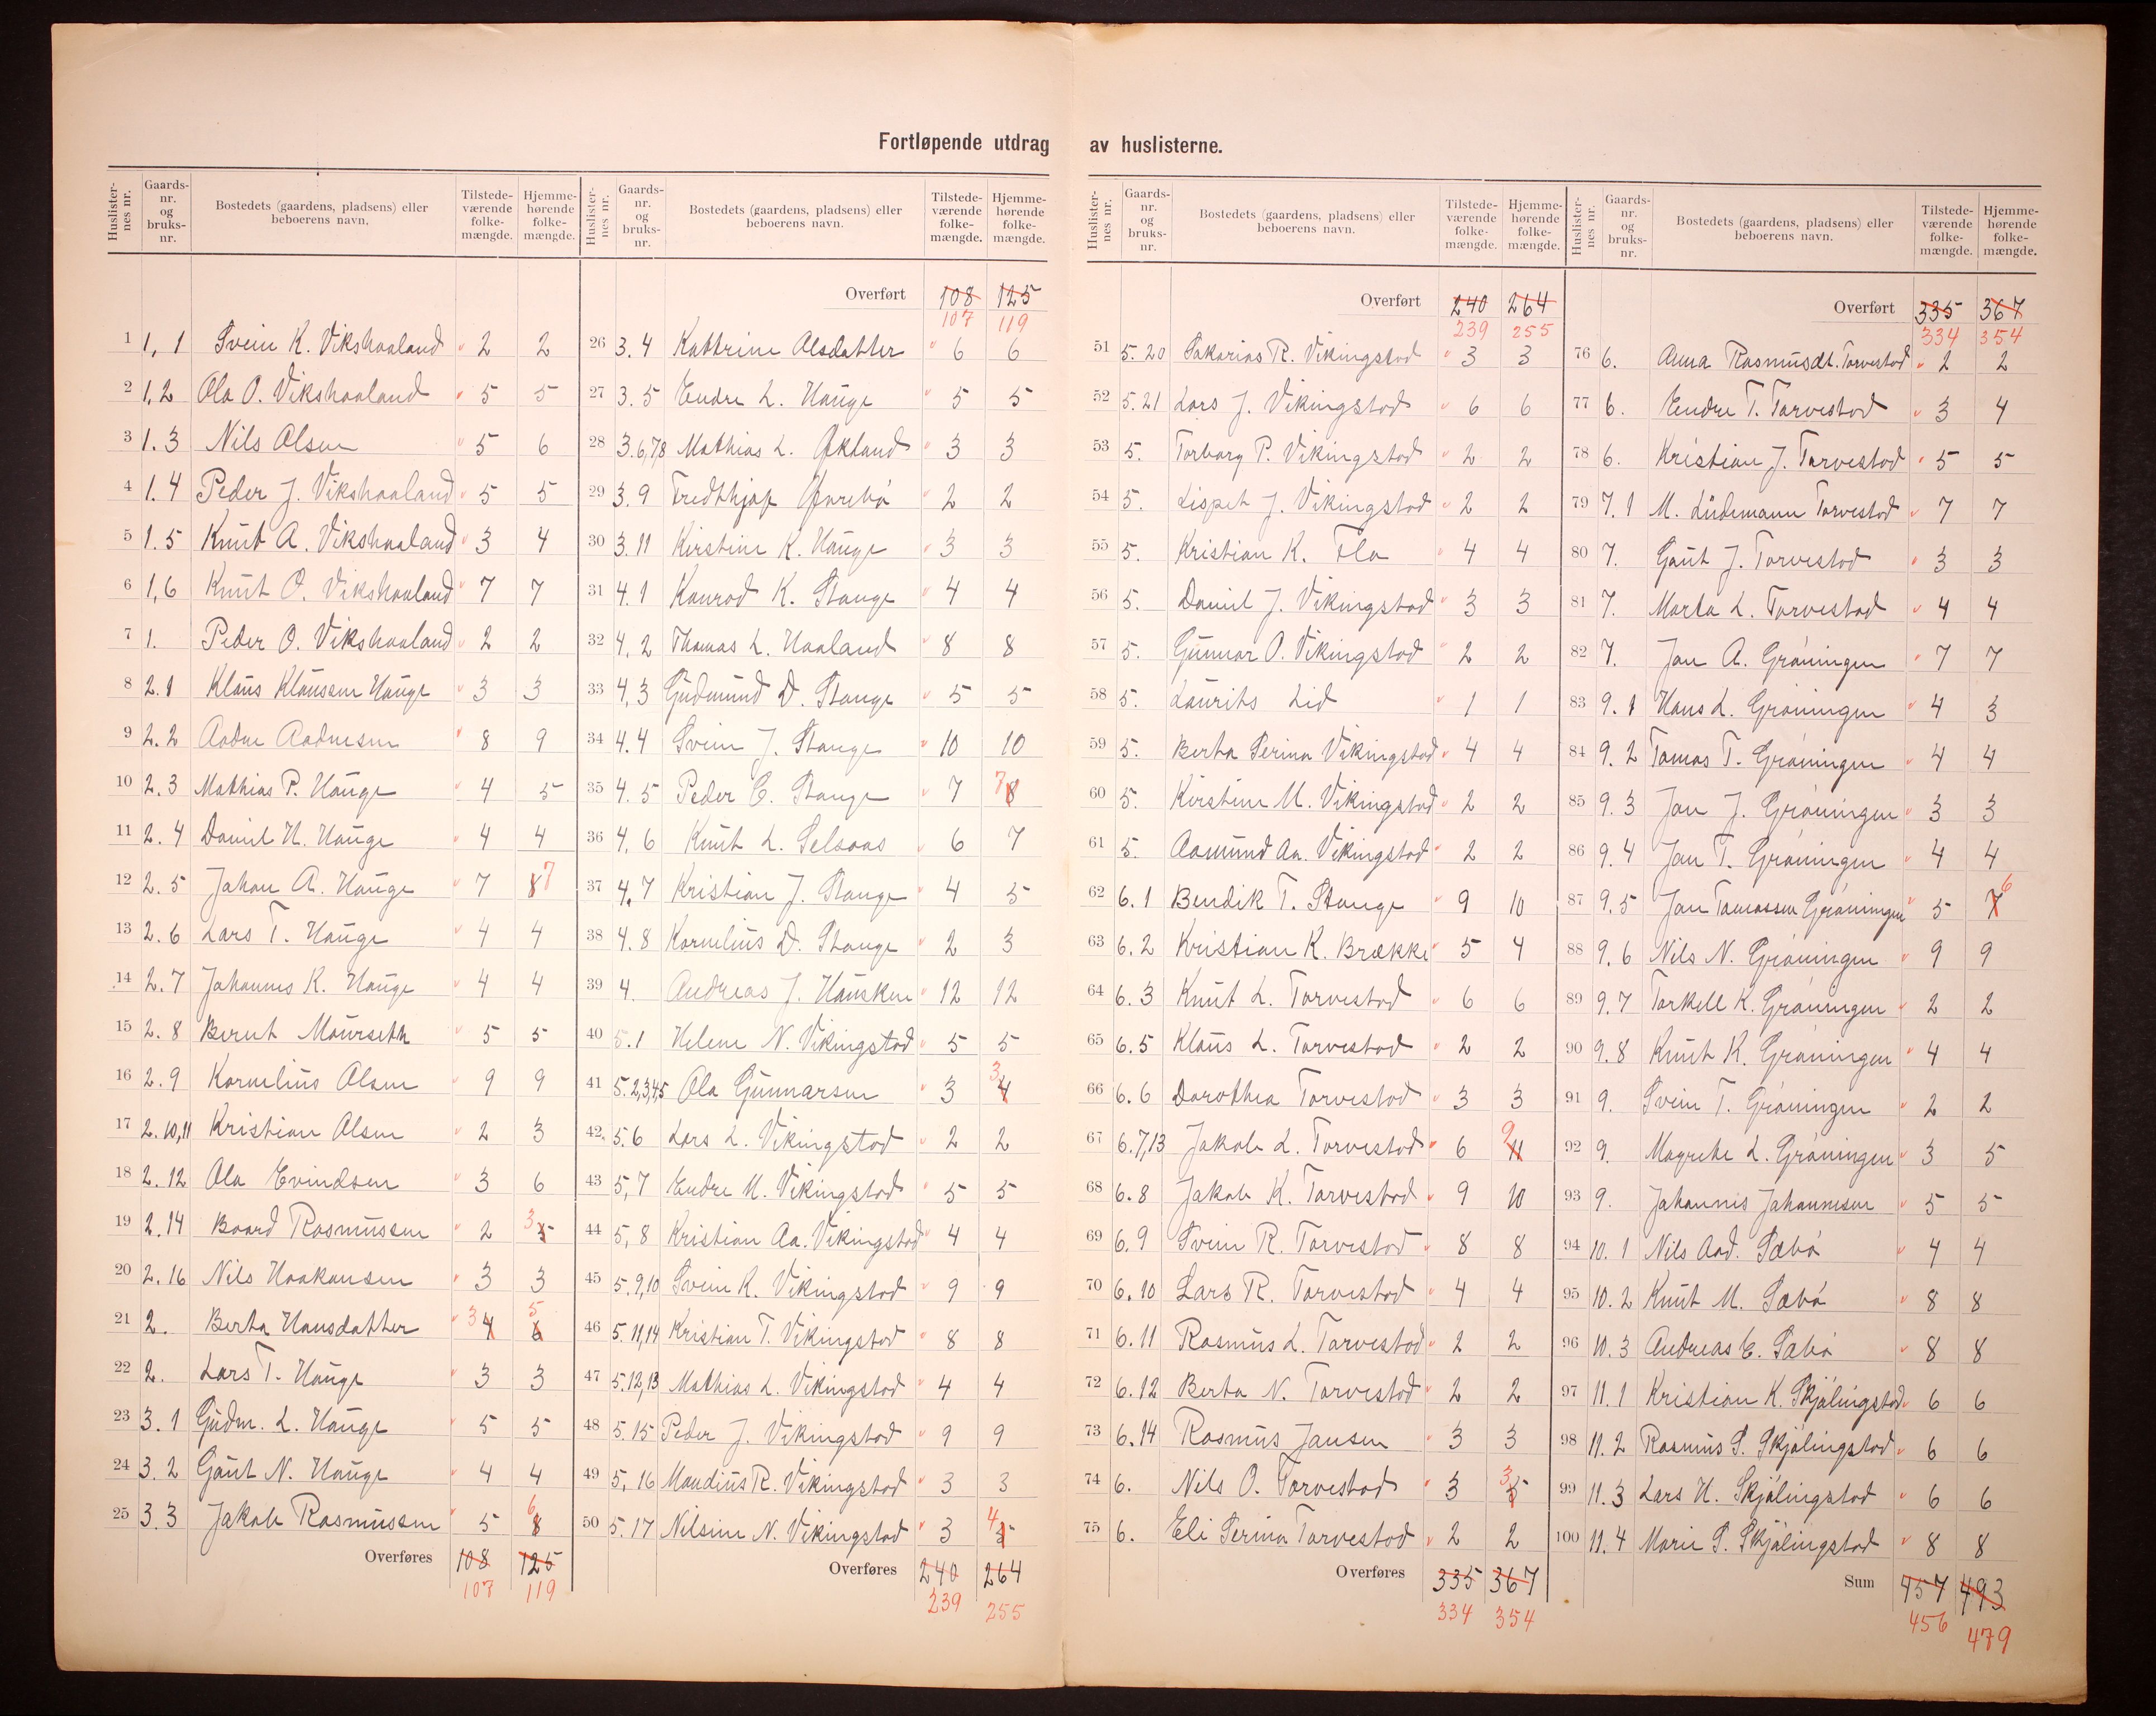 Fortløpende utdrag av huslisterne.
Huslisternes nr. Gaards-nr. og bruks-nr. Bostedets (gaardens, pladsens) eller beboerens navn. Tilstedeværende folkemængde. Hjemmehørende folkemængde.
1 1,1 Svein K. Vikshaaland 2 2
2 1,2 Ola O. Vikshaaland 5 5
3 1.3 Nils Olsen 5 6
4 1.4 Peder J. Vikshaaland 5 5
5 1.5 Knut A. Vikshaaland 3 4
6 1,6 Knut O. Vikshaaland 7 7
7 1. Peder O. Vikshaaland 2 2
8 2.1 Klaus Klausen Hauge 3 3
9 2.2 Aadne Aadnesen 8 9
10 2.3 Mathias P. Hauge 4 5
11 2.4 Daniel H. Hauge 4 4
12 2.5 Johan A. Hauge 7 8 7
13 2.6 Lars T. Hauge 4 4
14 2.7 Johannes K. Hauge 4 4
15 2.8 Bernt Maurseth 5 5
16 2.9 Kornelius Olsen 9 9
17 2.10,11 Kristian Olsen 2 3
18 2.12 Ola Evindsen 3 6
19 2.14 Baard Rasmussen 2 3 5
20 2.16 Nils Haakonsen 3 3
21 2. Berta Hansdatter 3 4 5 6
22 2. Lars T. Hauge 3 3
23 3.1 Gudm. L. Hauge 5 5
24 3.2 Gaut N. Hauge 4 4
25 3.3 Jakob Rasmussen 5 6 8
Overføres 108 125
107 119
Huslisternes nr. Gaards-nr. og bruks-nr. Bostedets (gaardens, pladsens) eller beboerens navn. Tilstedeværende folkemængde. Hjemmehørende folkemængde.
Overført 108 125
107 119
26 3.4 Kattrine Olsdatter 6 6
27 3.5 Endre L. Hauge 5 5
28 3.6,7,8 Mathias L. Økland 3 3
29 3.9 Fredthjof 2 2
30 3.11 Kirstine K. Hauge 3 3
31 4.1 Konrad K. Stange 4 4
32 4.2 Thomas L. Haaland 8 8
33 4,3 Gudmund D. Stange 5 5
34 4.4 Svein J. Stange 10 10
35 4.5 Peder C. Stange 7 7 8
36 4,6 Knut L. Selsaas 6 7
37 4.7 Kristian J. Stange 4 5
38 4.8 Kornelius D. Stange 2 3
39 4. Andreas J. Hausken 12 12
40 5.1 Helene N. Vikingstad 5 5
41 5.2,3,4,5 Ola Gunnarsen 3 3 4
42 5.6 Lars L. Vikingstad 2 2
43 5,7 Endre M. Vikingstad 5 5
44 5,8 Kristian Aa. Vikingstad 4 4
45 5.9,10 Svein K. Vikingstad 9 9
46 5.11,14 Kristian T. Vikingstad 8 8
47 5.12,13 Mathias L. Vikingstad 4 4
48 5.15 Peder J. Vikingstad 9 9
49 5,16 Maudius R. Vikingstad 3 3
50 5.17 Nilsine N. Vikingstad 3 4
Overføres 240 264
239 255
Huslisternes nr. Gaards-nr. og bruks-nr. Bostedets (gaardens, pladsens) eller beboerens navn. Tilstedeværende folkemængde. Hjemmehørende folkemængde.
Overført 240 264
239 255
51 5.20 Sakarias R. Vikingstad 3 3
52 5.21 Lars J. Vikingstad 6 6
53 5. Torborg P. Vikingstad 2 2
54 5. Lispet J. Vikingstad 2 2
55 5. Kristian K. Flo 4 4
56 5. Daniel J. Vikingstad 3 3
57 5. Gunnar O. Vikingstad 2 2
58 5. Laurits Lid 1 1
59 5. Berta Serina Vikingstad 4 4
60 5. Kirstine M. Vikingstad 2 2
61 5. Aamund Aa. Vikingstad 2 2
62 6.1 Bendik T. Stange 9 10
63 6.2 Kristian K. Brække 5 4
64 6.3 Knut L. Torvestad 6 6
65 6.5 Klaus L. Torvestad 2 2
66 6.6 Dorothea Torvestad 3 3
67 6.7,13 Jakob L. Torvestad 6 9 11
68 6.8 Jakob K. Torvestad 9 10
69 6.9 Svein R. Torvestad 8 8
70 6.10 Lars R. Torvestad 4 4
71 6.11 Rasmus L. Torvestad 2 2
72 6.12 Berta N. Torvestad 2 2
73 6.14 Rasmus Jansen 3 3
74 6. Nils O. Torvestad 3 3 5
75 6. Eli Serina Torvestad 2 2
Overføres 335 367
334 354
Huslisternes nr. Gaards-nr. og bruks-nr. Bostedets (gaardens, pladsens) eller beboerens navn. Tilstedeværende folkemængde. Hjemmehørende folkemængde.
Overført 335 367
334 354
76 6. Anna Rasmusdt. Torvestad 2 2
77 6. Endre T. Torvestad 3 4
78 6. Kristian J. Torvestad 5 5
79 7.1 M. Lüdemann Torvestad 7 7
80 7. Gaut J. Torvestad 3 3
81 7. Marta L. Torvestad 4 4
82 7. Jan A. Grøningen 7 7
83 9.1 Hans L. Grøningen 4 3
84 9.2 Tomas T. Grøningen 4 4
85 9.3 Jan J. Grøningen 3 3
86 9.4 Jan T. Grøningen 4 4
87 9.5 Jan Tomassen Grøningen 5 7 6
88 9.6 Nils N. Grøningen 9 9
89 9.7 Torkell K. Grøningen 2 2
90 9.8 Knut K. Grøningen 4 4
91 9. Svein T. Grøningen 2 2
92 9. Magrete L. Grøningen 3 5
93 9. Johannis Johannesen 5 5
94 10.1 Nils Aad. Sæbø 4 4
95 10.2 Knut M. Sæbø 8 8
96 10.3 Andreas E. Sæbø 8 8
97 11.1 Kristian K. Skjølingstad 6 6
98 11.2 Rasmus S. Skjølingstad 6 6
99 11.3 Lars H. Skjølingstad 6 6
100 11.4 Marie S. Skjølingstad 8 8
Sum 457 493
456 479